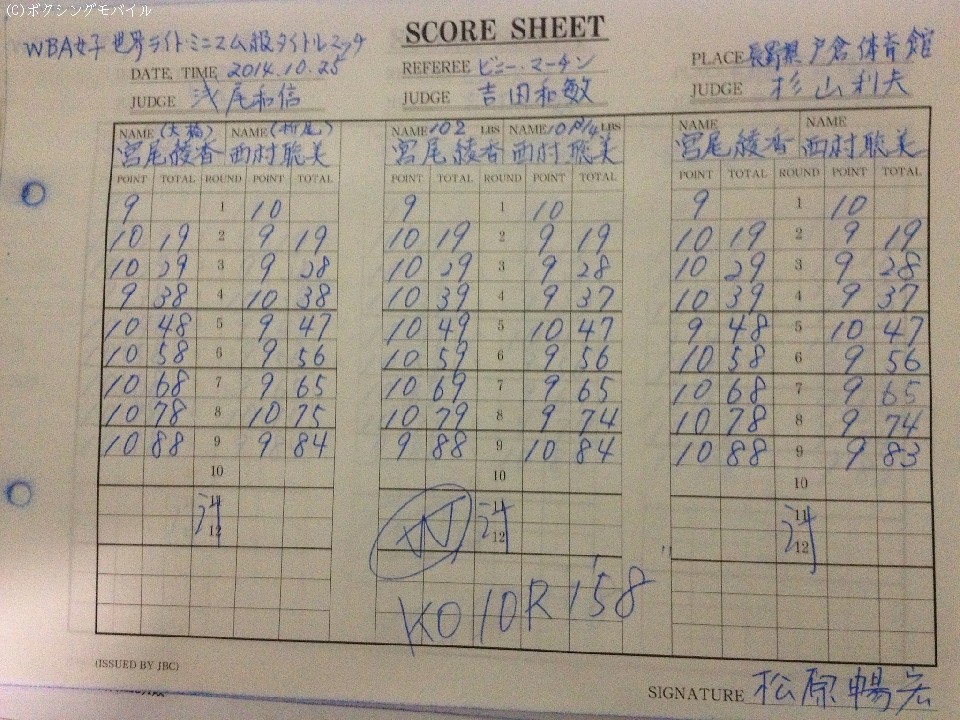 (C)ボクシングモバイル
SCORE SHEET
WBA女子世界ライト・ミニマム級タイトルマッチ
DATE, TIME 2014.10.25
REFEREE ビニー・マーチン
PLACE 長野県 戸倉体育館
JUDGE 浅尾和信
JUDGE 吉田和敏
JUDGE 杉山利夫
NAME (大橋) NAME (折尾) NAME 102 LBS NAME 101 3/4 LBS NAME NAME
宮尾綾香 西村聡美 宮尾綾香 西村聡美 宮尾綾香 西村聡美
POINT TOTAL ROUND POINT TOTAL POINT TOTAL ROUND POINT TOTAL POINT TOTAL ROUND POINT TOTAL
9 1 10 9 1 10 9 1 10
10 19 2 9 19 10 19 2 9 19 10 19 2 9 19
10 29 3 9 28 10 29 3 9 28 10 29 3 9 28
9 38 4 10 38 10 39 4 9 37 10 39 4 9 37
10 48 5 9 47 10 49 5 10 47 9 48 5 10 47
10 58 6 9 56 10 59 6 9 56 10 58 6 9 56
10 68 7 9 65 10 69 7 9 65 10 68 7 9 65
10 78 8 10 75 10 79 8 9 74 10 78 8 9 74
10 88 9 9 84 9 88 9 10 84 10 88 9 9 83
10 10 10
11 11 11
W
12 12 12
KO 10R 1'58"
(ISSUED BY JBC)
SIGNATURE 松原暢宏